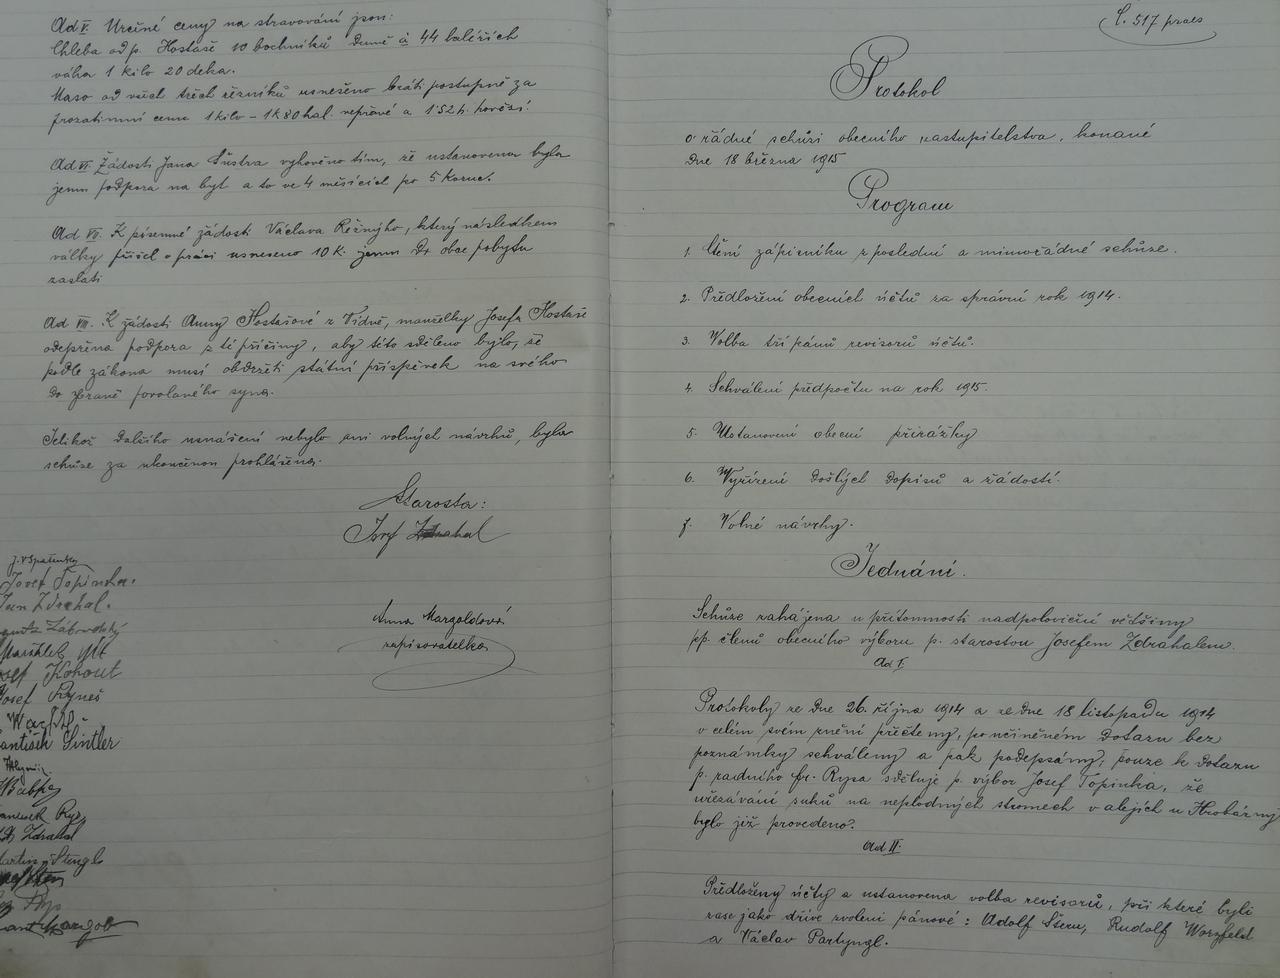 Ad V. Určené ceny na stravování jsou:
Chleba od p. Hostaše 10 bochníků denně à 44 haléřích
váha 1 kilo 20 deka.
Maso od všech třech řezníků usneseno bráti postupně za
prozatimní cenu 1 kilo – 1K 80 hal. vepřové a 1·52 h. hovězí.
Ad VI. Žádosti Jana Šustra vyhověno tím, že ustanovena byla
jemu podpora na byt a to ve 4 měsících po 5 Korun.
Ad VII. K písemné žádosti Václava Řezného, který následkem
války přišel o práci usneseno 10 K. jemu do obce pobytu
zaslati
Ad VIII. K žádosti Anny Hostašové z Vídně, manželky Josefa Hostaše
odepřena podpora z té příčiny, aby této sděleno bylo, že
podle zákona musí obdržeti státní příspěvek na svého
do zbraně povolaného syna.
Jelikož dalšího usnášení nebylo ani volných návrhů, byla
schůze za ukončenou prohlášena.
Starosta:
Josef Zdrahal
Josef Topinka.
Jan Zdrahal.
Záborský
Josef Kohout
Josef Ryneš
František Gintler
Zdrahal
Martin Stengl
Anna Margoldová
zapisovatelka
Č. 517 praes
Protokol
o řádné schůzi obecního zastupitelstva, konané
dne 18 března 1915
Program
1. Čtení zápisníku z poslední a mimořádné schůze.
2. Předložení obecních účtů za správní rok 1914.
3. Volba tří pánů revisorů účtů.
4. Schválení předpočtu na rok 1915.
5. Ustanovení obecní přirážky
6. Vyřízení došlých dopisů a žádostí.
7. Volné návrhy.
Jednání.
Schůze zahájena u přítomnosti nadpoloviční většiny
pp. členů obecního výboru p. starostou Josefem Zdrahalem.
Ad I.
Protokoly ze dne 26. října 1914 a ze dne 18 listopadu 1914
v celém svém znění přečteny, po učiněném dotazu bez
poznámky schváleny a pak podepsány; pouze k dotazu
p. radního Fr. Rypa sděluje p. výbor Josef Topinka, že
uřezávání suků na neplodných stromech v alejích u Hrobárny
bylo již provedeno.
Ad II.
Předloženy účty a ustanovena volba revisorů, při které byli
zase jako dříve zvoleni pánové: Adolf Štern, Rudolf Worzfeld
a Václav Partyngl.